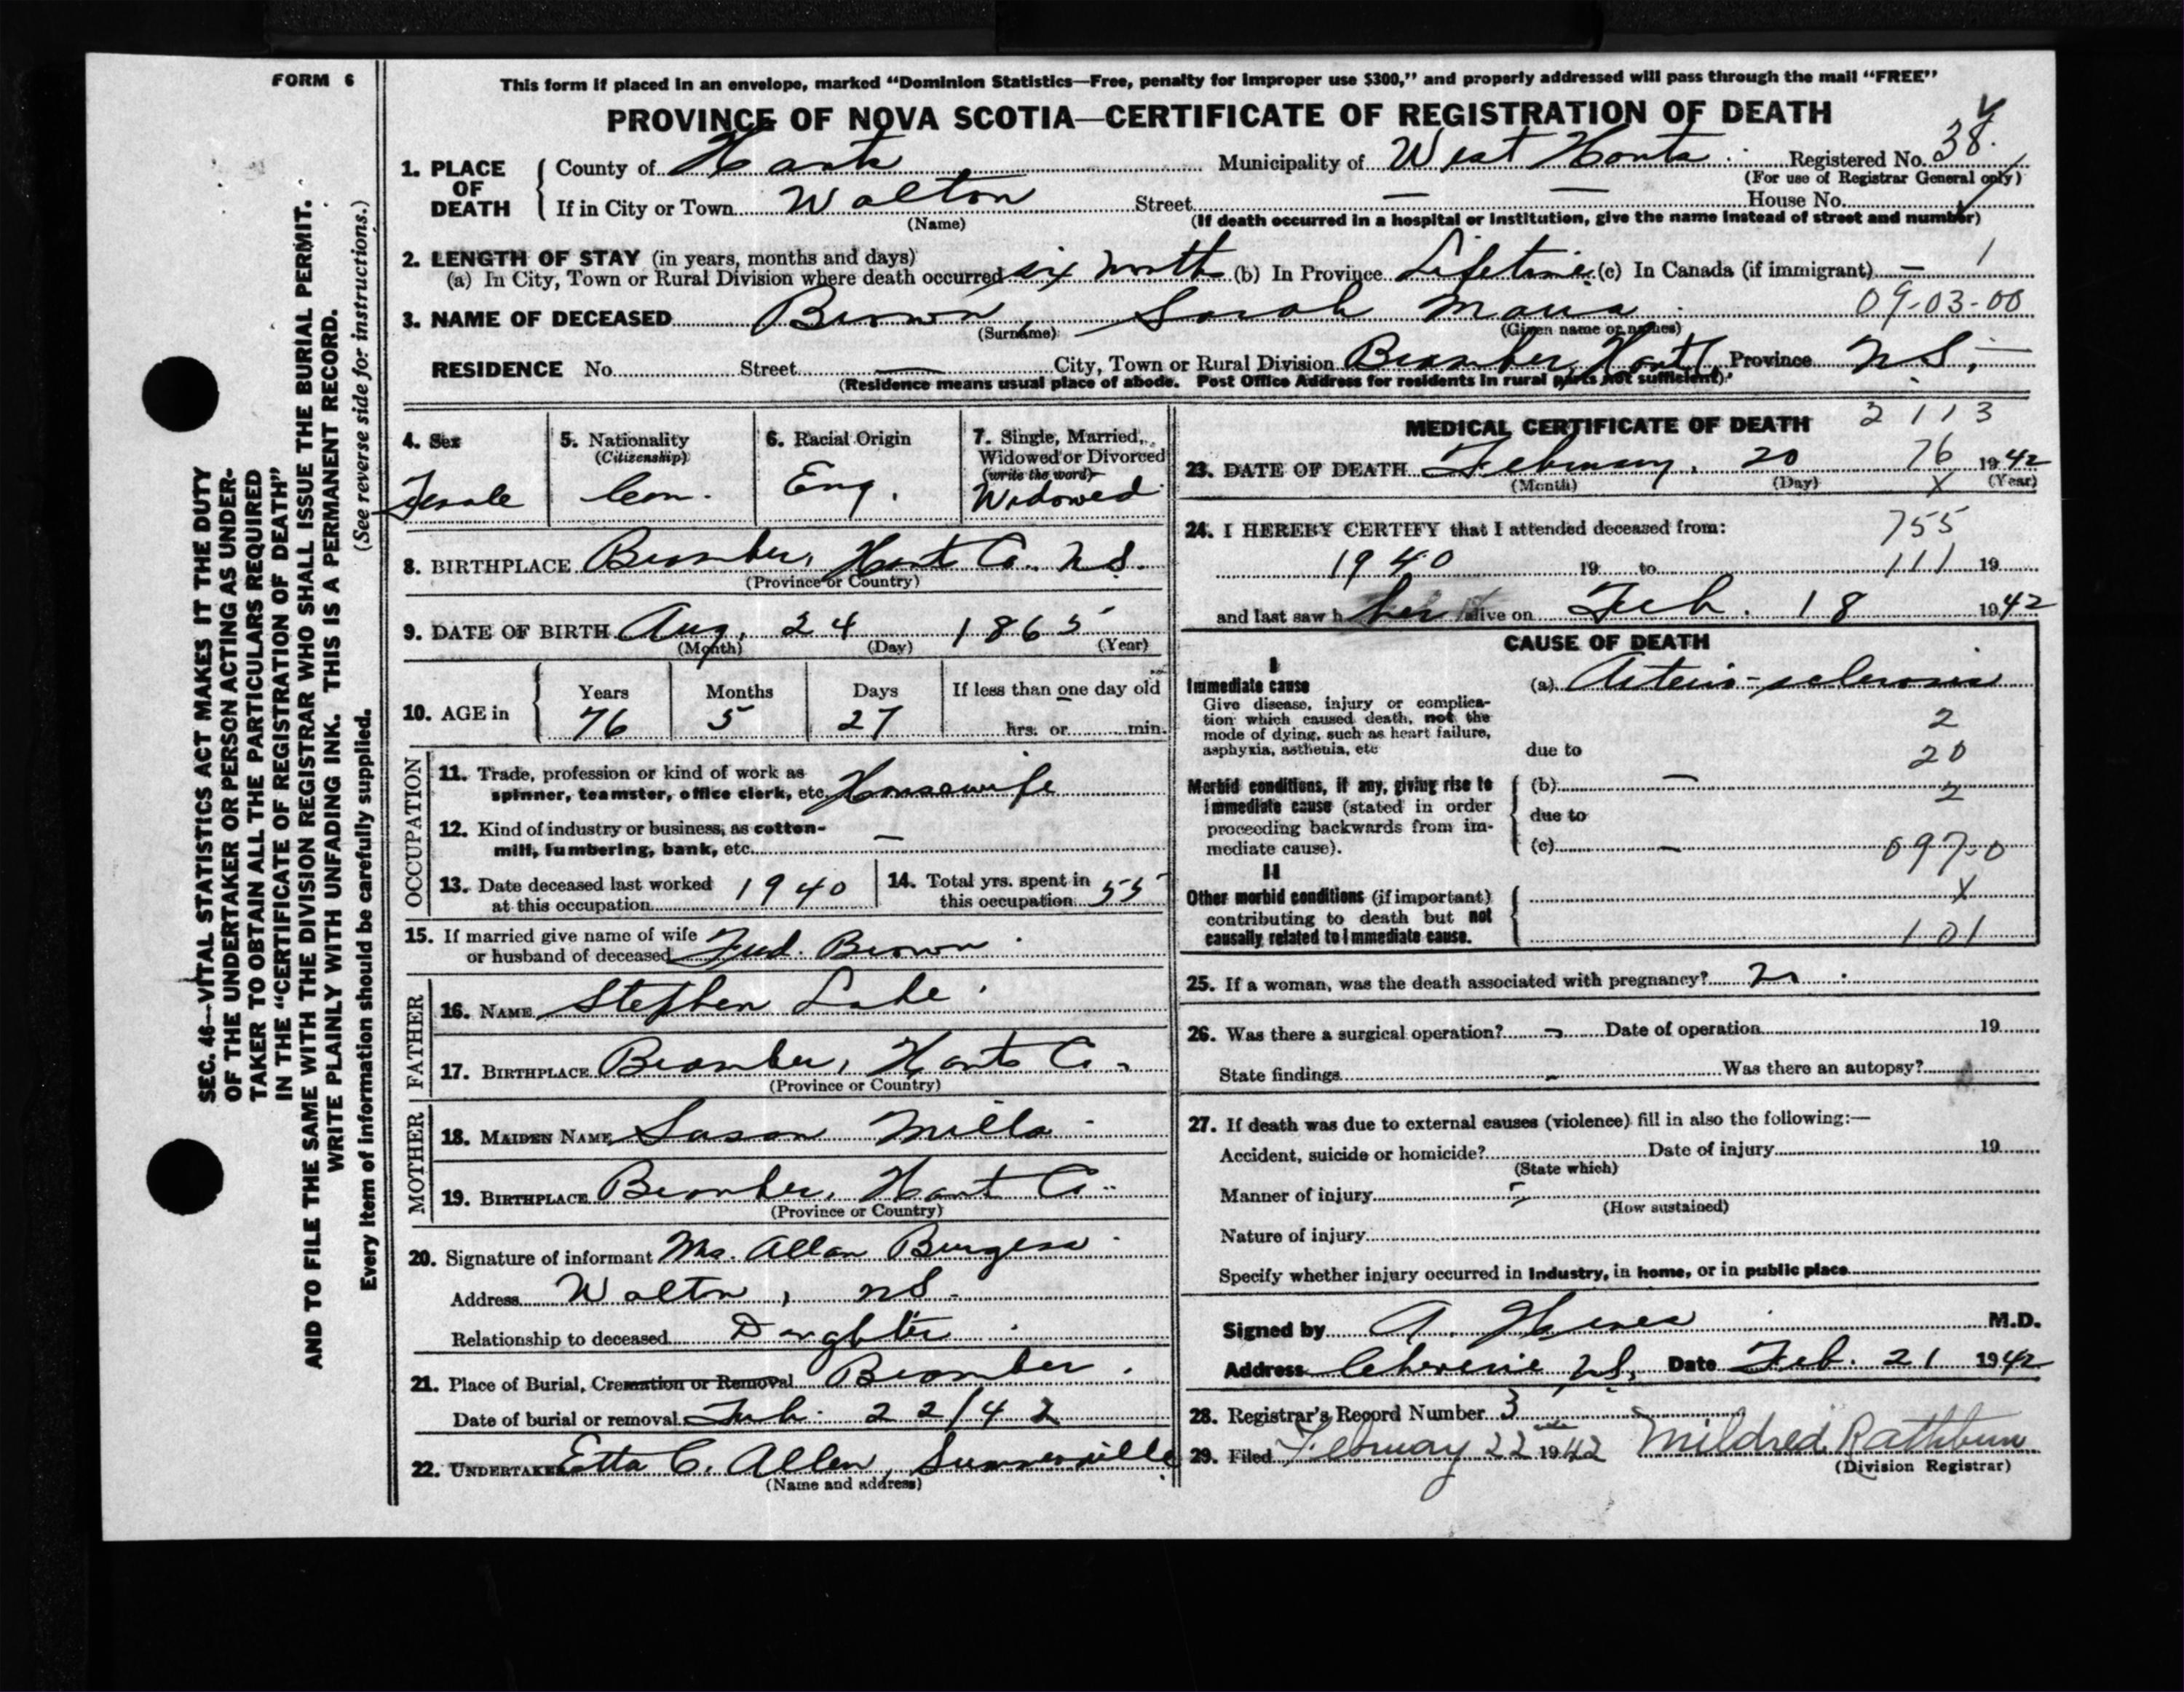 FORM 6
This form if placed in an envelope, marked “Dominion Statistics—Free, penalty for improper use $300,” and properly addressed will pass through the mail “FREE”
PROVINCE OF NOVA SCOTIA—CERTIFICATE OF REGISTRATION OF DEATH
1. PLACE OF DEATH County of Hants Municipality of West Hants Registered No. 38
(For use of Registrar General only)
If in City or Town Walton Street — — House No.
(Name) (If death occurred in a hospital or institution, give the name instead of street and number)
2. LENGTH OF STAY (in years, months and days)
(a) In City, Town or Rural Division where death occurred six month (b) In Province Lifetime (c) In Canada (if immigrant) — 1
3. NAME OF DECEASED Brown, Sarah Maria 09-03-00
(Surname) (Given name or names)
RESIDENCE No. Street — City, Town or Rural Division Bramber, Hants Province N S, —
(Residence means usual place of abode. Post Office Address for residents in rural parts not sufficient).
4. Sex Female
5. Nationality (Citizenship) Can.
6. Racial Origin Eng.
7. Single, Married, Widowed or Divorced (write the word) Widowed
8. BIRTHPLACE Bramber, Hants Co. N.S.
(Province or Country)
9. DATE OF BIRTH Aug. 24 1865
(Month) (Day) (Year)
10. AGE in Years 76 Months 5 Days 27 If less than one day old hrs. or min.
OCCUPATION
11. Trade, profession or kind of work as spinner, teamster, office clerk, etc. Housewife
12. Kind of industry or business, as cotton-mill, lumbering, bank, etc. —
13. Date deceased last worked at this occupation 1940
14. Total yrs. spent in this occupation 55
15. If married give name of wife or husband of deceased Fred. Brown
FATHER
16. NAME Stephen Lake
17. BIRTHPLACE Bramber, Hants Co.
(Province or Country)
MOTHER
18. MAIDEN NAME Susan Mills
19. BIRTHPLACE Bramber, Hants Co.
(Province or Country)
20. Signature of informant Mrs. Allan Burgess
Address Walton, N.S.
Relationship to deceased Daughter
21. Place of Burial, Cremation or Removal Bramber
Date of burial or removal Feb. 22/42
22. UNDERTAKER Etta C. Allen, Summerville
(Name and address)
MEDICAL CERTIFICATE OF DEATH 2113
23. DATE OF DEATH February 20 76 1942
(Month) (Day) X (Year)
24. I HEREBY CERTIFY that I attended deceased from: 755
1940 19 to 111 19
and last saw her alive on Feb. 18 1942
CAUSE OF DEATH
I
Immediate cause (a) Arterio-sclerosis
Give disease, injury or complication which caused death, not the mode of dying, such as heart failure, asphyxia, asthenia, etc
2
due to 20
Morbid conditions, if any, giving rise to immediate cause (stated in order proceeding backwards from immediate cause).
(b) — 2
due to
(c) — 097-0
II
Other morbid conditions (if important) contributing to death but not causally related to immediate cause.
X
101
25. If a woman, was the death associated with pregnancy? No
26. Was there a surgical operation? — Date of operation 19
State findings — Was there an autopsy?
27. If death was due to external causes (violence) fill in also the following:—
Accident, suicide or homicide? Date of injury 19
(State which)
Manner of injury
(How sustained)
Nature of injury
Specify whether injury occurred in industry, in home, or in public place
Signed by A. M.D.
Address Cheverie N.S. Date Feb. 21 1942
28. Registrar's Record Number 3
29. Filed February 22 1942 Mildred Rathbun
(Division Registrar)
SEC. 46—VITAL STATISTICS ACT MAKES IT THE DUTY
OF THE UNDERTAKER OR PERSON ACTING AS UNDER-
TAKER TO OBTAIN ALL THE PARTICULARS REQUIRED
IN THE “CERTIFICATE OF REGISTRATION OF DEATH”
AND TO FILE THE SAME WITH THE DIVISION REGISTRAR WHO SHALL ISSUE THE BURIAL PERMIT.
WRITE PLAINLY WITH UNFADING INK. THIS IS A PERMANENT RECORD.
(See reverse side for instructions.)
Every item of information should be carefully supplied.